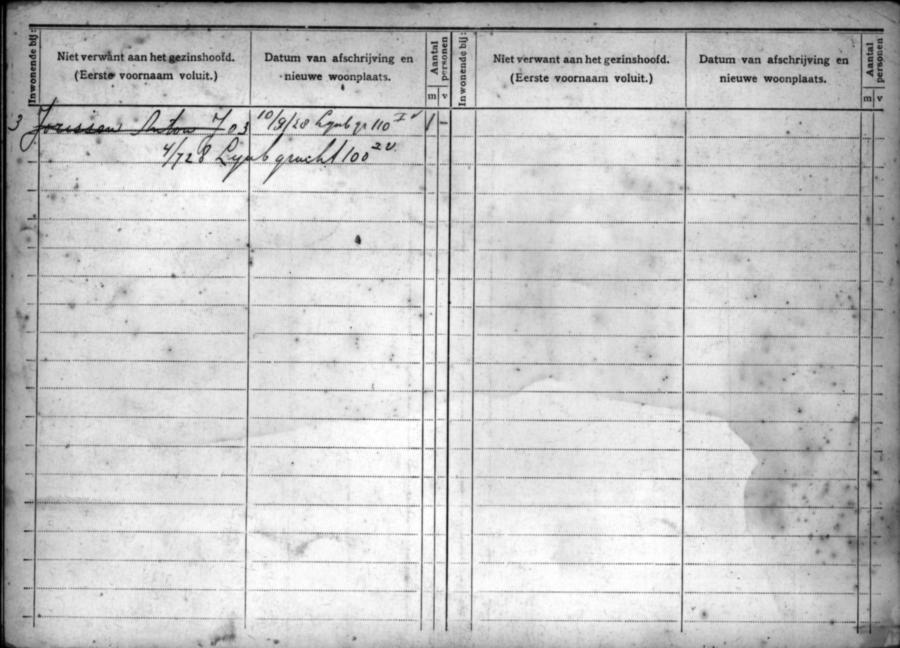 Inwonende bij: Niet verwant aan het gezinshoofd. (Eerste voornaam voluit.) Datum van afschrijving en nieuwe woonplaats. Aantal personen m v
Inwonende bij: Niet verwant aan het gezinshoofd. (Eerste voornaam voluit.) Datum van afschrijving en nieuwe woonplaats. Aantal personen m v
3 Jorissen Anton J 03 10/9/28 Lynbgr 110 I v 1 -
4/728 Lynbgracht 100 2 v